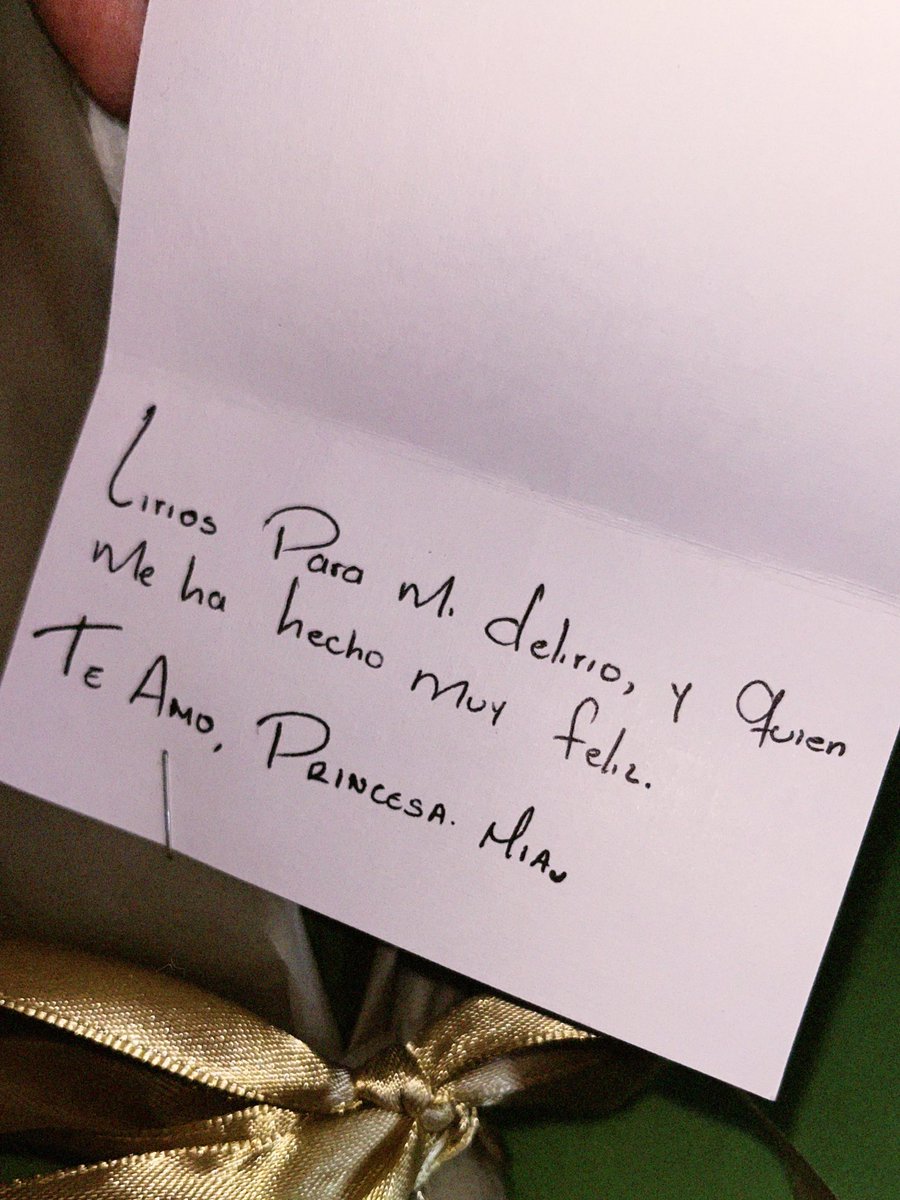 Lirios Para Mi delirio, y Quien
Me ha hecho muy feliz.
TE AMO, PRINCESA. MIAU